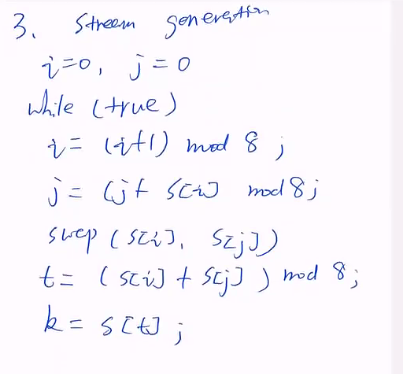 3. Stream generation
i=0, j=0
while (true)
i= (i+1) mod 8 ;
j= (j+ S[i] mod 8;
swep (S[i], S[j])
t= (S[i] + S[j]) mod 8;
k= S[t];